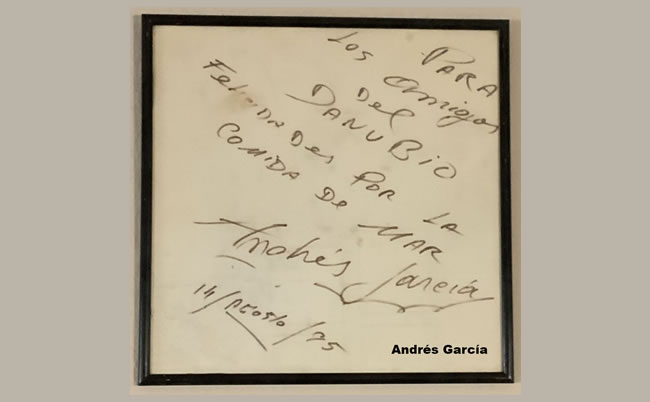 PARA
LOS amigos
Del
DANUBIO
FeliciDaDes POR LA
COMIDA De MAR
Andrés García
14/AGOSTO/75
Andrés García